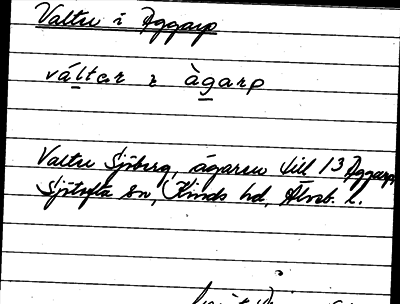 Valter i Aggarp
váltar i àgarp
Valter Sjöberg, ägaren till 13 Aggarp,
Sjötofta sn, Kinds hd, Älvsb. l.